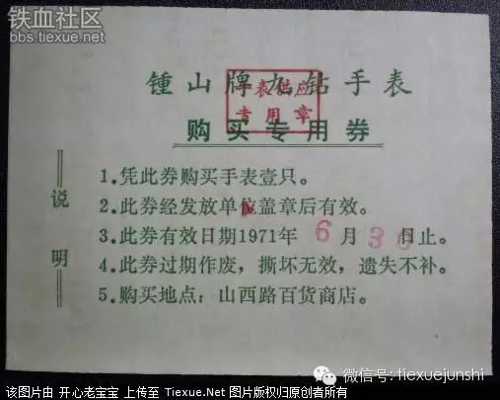 铁血社区
bbs.tiexue.net
锺山牌九钻手表
表供应
专用章
购买专用券
说明
1.凭此券购买手表壹只。
2.此券经发放单位盖章后有效。
3.此券有效日期1971年6月30日止。
4.此券过期作废，撕坏无效，遗失不补。
5.购买地点：山西路百货商店。
微信号: tiexuejunshi
该图片由 开心老宝宝 上传至 Tiexue.Net 图片版权归原创者所有